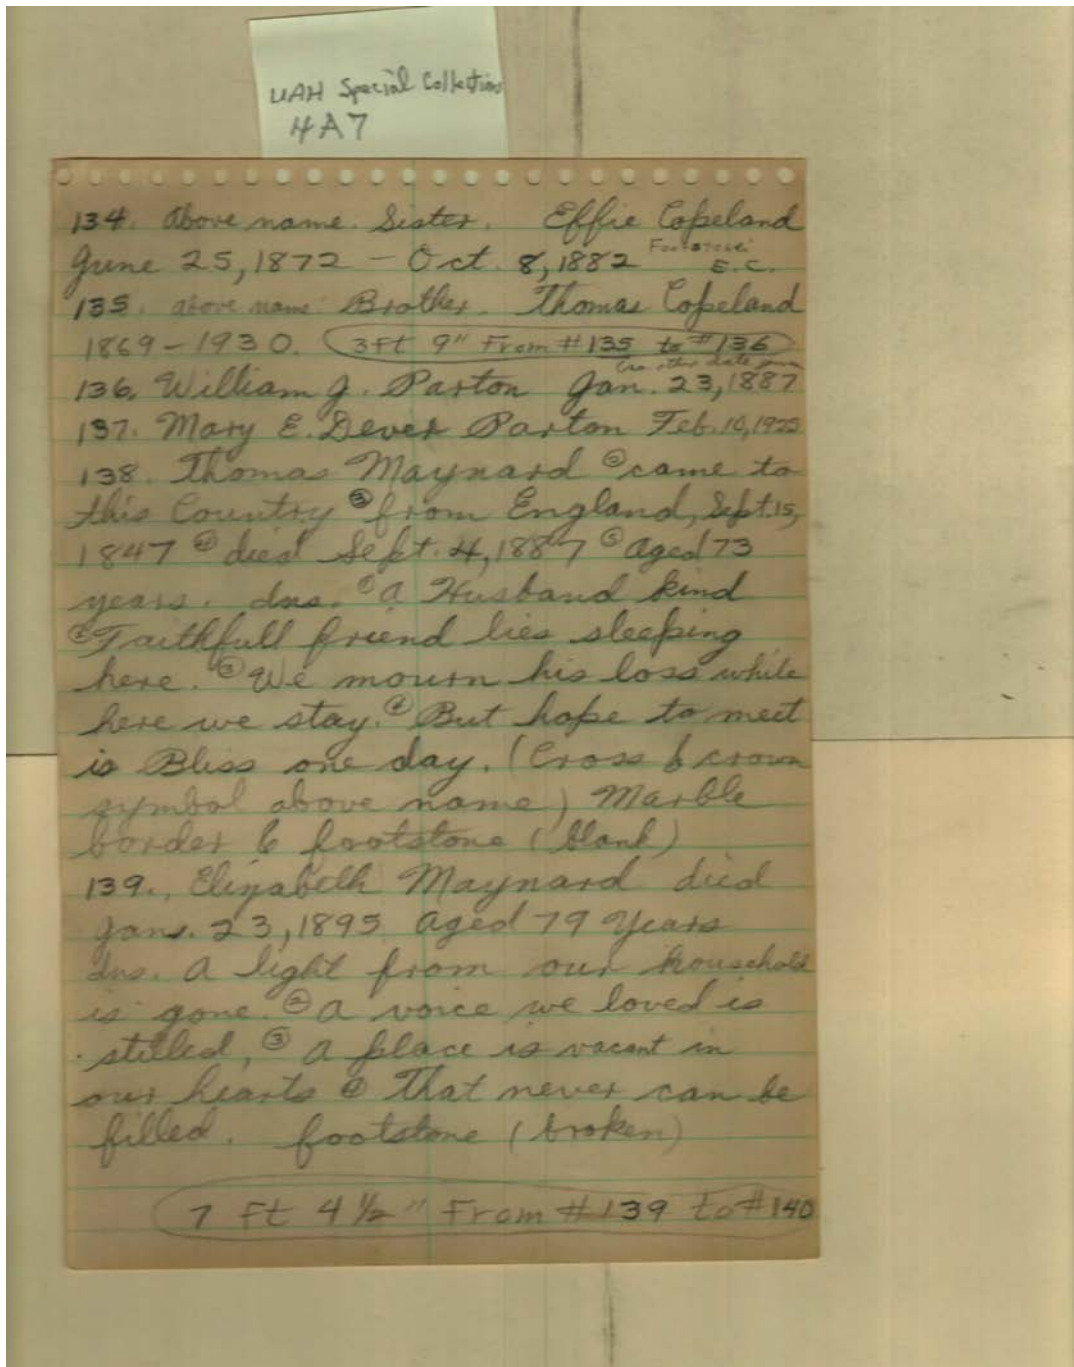 UAH Special Collections
4A7
134. Above name. Sister. Effie Copeland
June 25, 1872 - Oct. 8, 1882 Footstone: E.C.
135. above name: Brother. Thomas Copeland
1869-1930. 3ft 9" From #135 to #136
(no other date given
136. William J. Parton Jan. 23, 1887
137. Mary E. Dever Parton Feb. 10, 1925
138. Thomas Maynard ② came to
this Country ③ from England, Sept. 15,
1847 ④ died Sept. 4, 1887 ⑤ Aged 73
years. Ins. ① A Husband kind
② Faithfull friend lies sleeping
here. ③ We mourn his loss while
here we stay. ④ But hope to meet
is Bliss one day. (Cross & crown
symbol above name) Marble
border & footstone (blank)
139. Elizabeth Maynard died
Jan. 23, 1895 Aged 79 Years
Ins. A light from our household
is gone. ② A voice we loved is
stilled, ③ A place is vacant in
our hearts ④ That never can be
filled. footstone (broken)
7 Ft 4 1/2" From #139 to #140